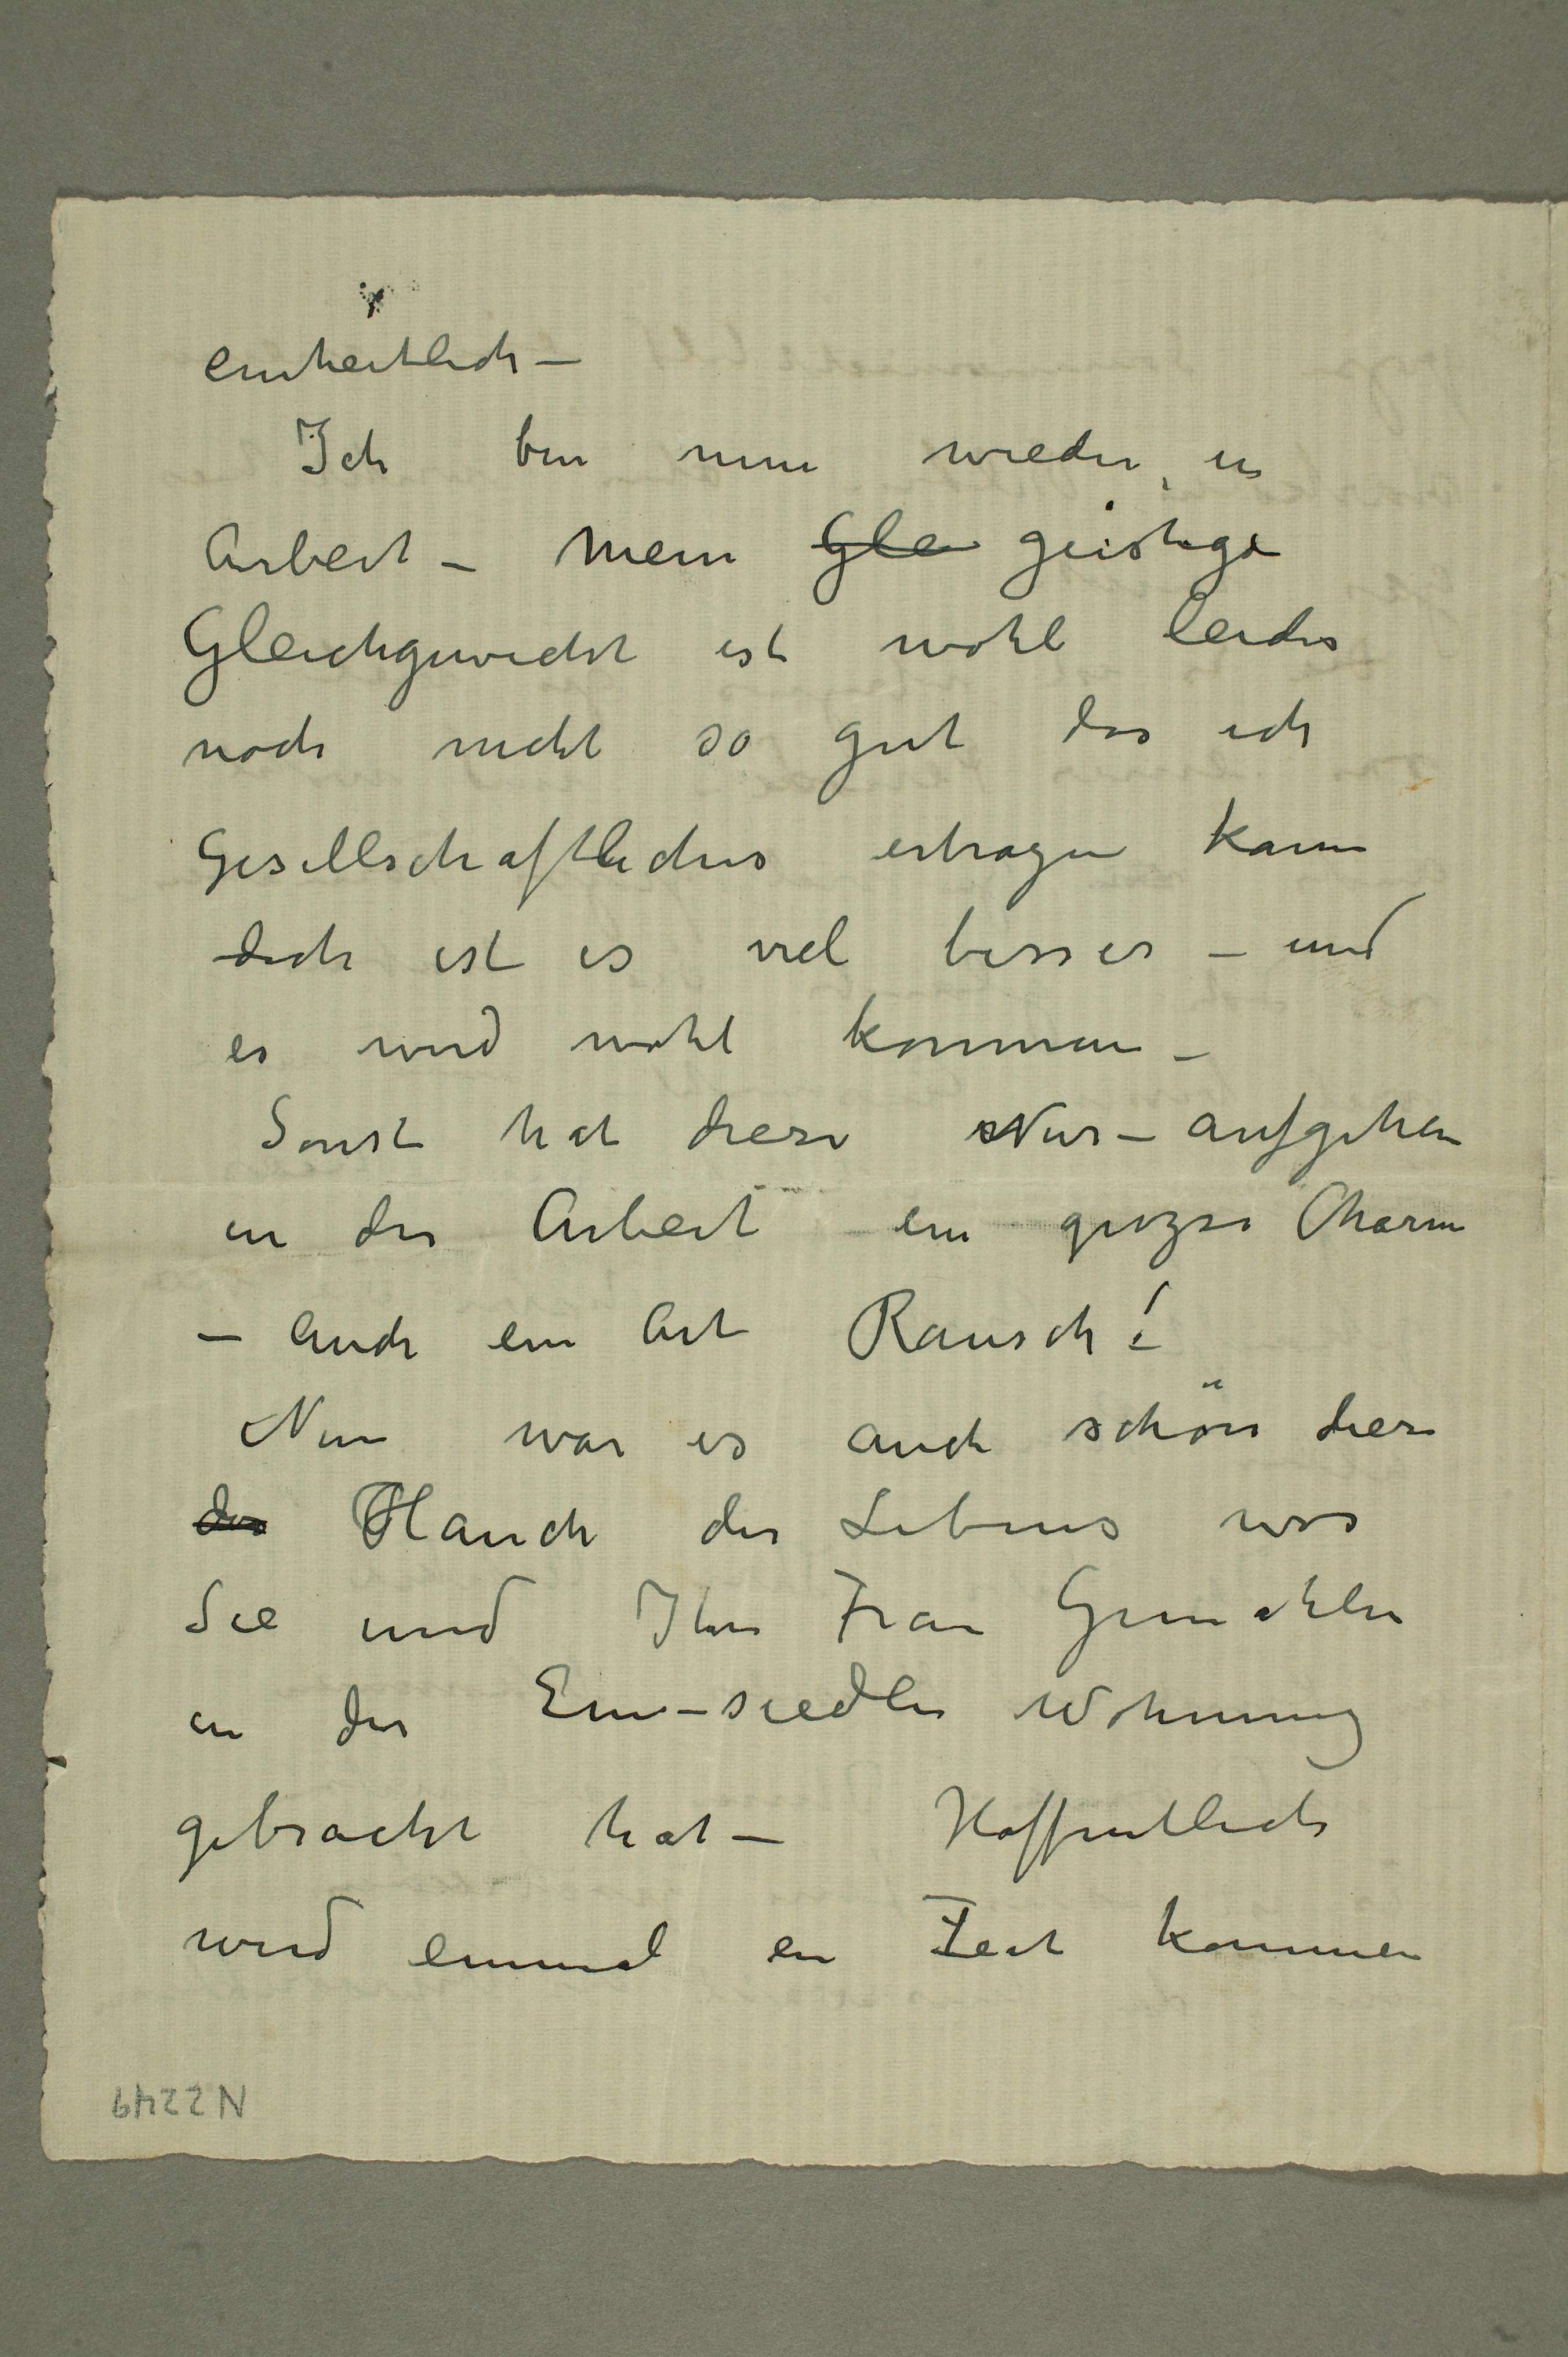 einheitlich –
Ich bin nun wieder in
Arbeit – Mein Glei geistige
Gleichgewicht ist wohl leider
noch nicht so gut das ich
Gesellschaftliches ertragen kann
doch ist es viel besser – und
es wird wohl kommen –
Sonst hat diese Nur – aufgehen
in der Arbeit ein grozse Charm
– auch ein Art Rausch!
Nun war es auch schön diese
der Hauch des Lebens was
Sie und Ihre Frau Gemahlin
in der Ein–siedler Wohnung
gebracht hat – Hoffentlich
wird einmal ein Zeit kommen
N2249